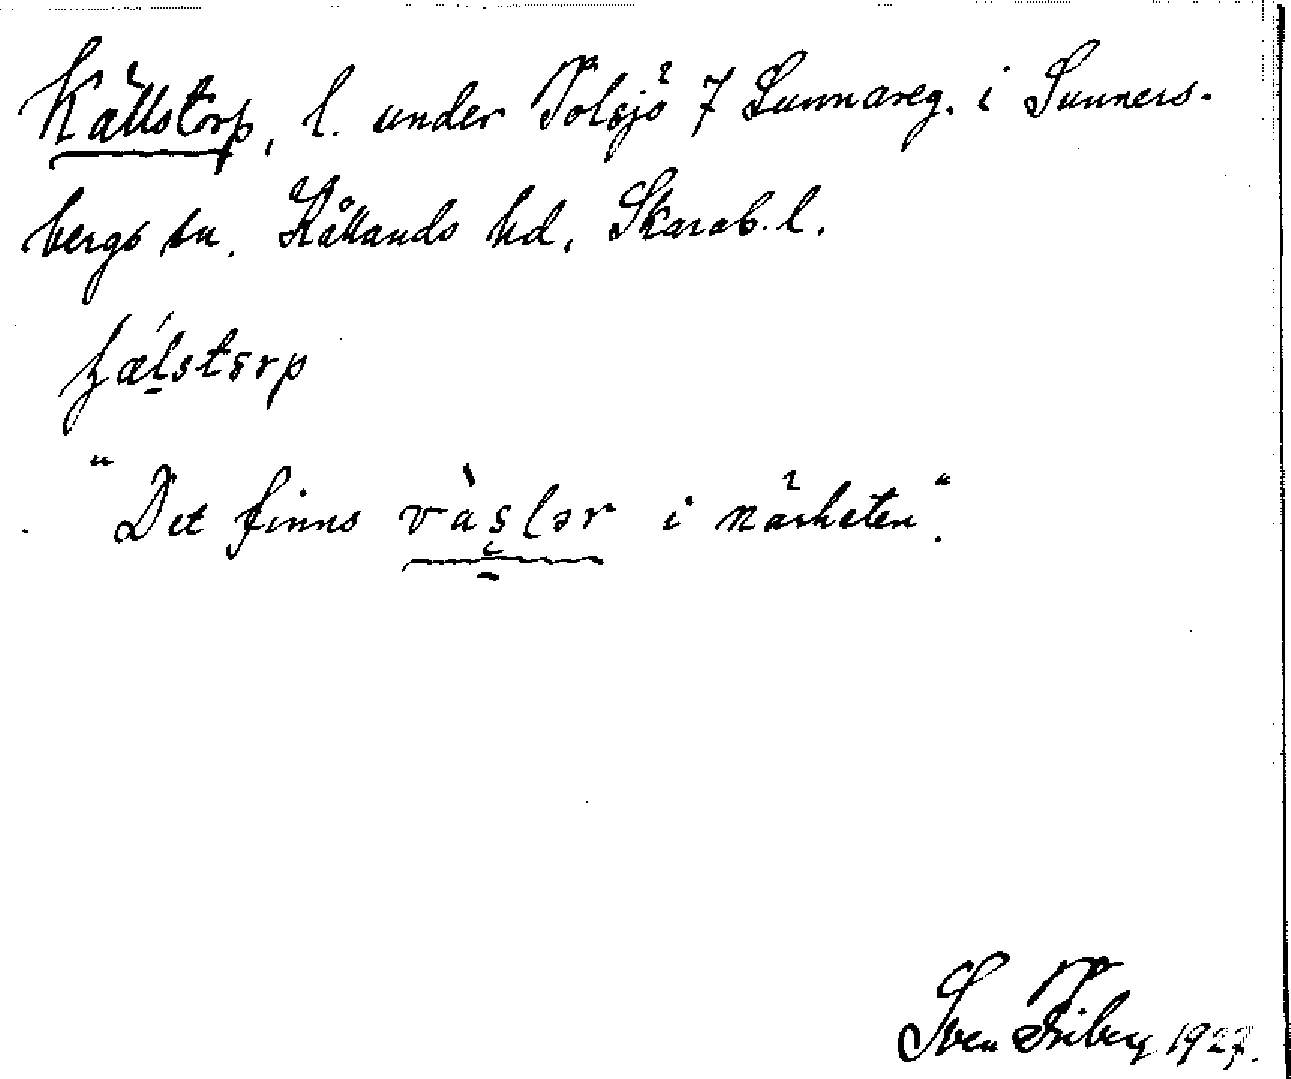 Källstorp, l. under Tolsjö 7 Sunnareg. i Sunners-
bergs sn. Kållands hd, Skarab. l.
"Det finns vàslər i närheten".
Sven Friberg 1927.